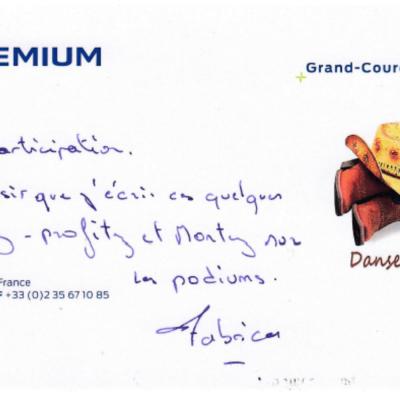 EMIUM
Grand-Cour
articipation.
sir que j'écris ces quelques
- profitez et Montez sur
les podiums.
Danse
France
F +33 (0)2 35 67 10 85
Fabrice